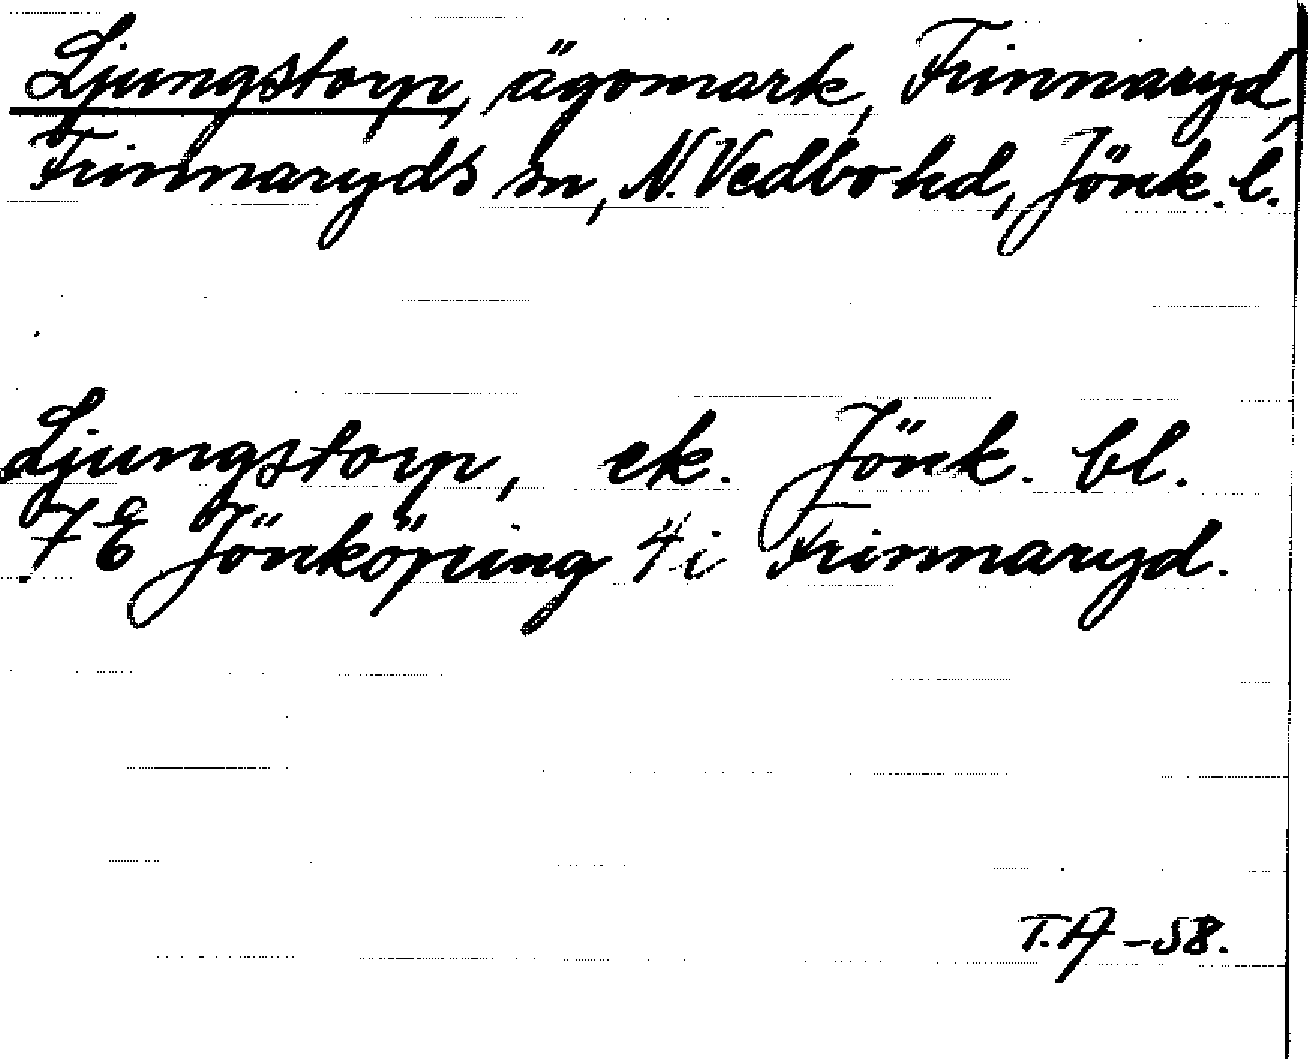 Ljungstorp, ägomark, Frinnaryd,
Frinnaryds sn, N. Vedbo hd, Jönk. l.
Ljungstorp, ek. Jönk. bl.
7E Jönköping 4i Frinnaryd.
T.A -58.